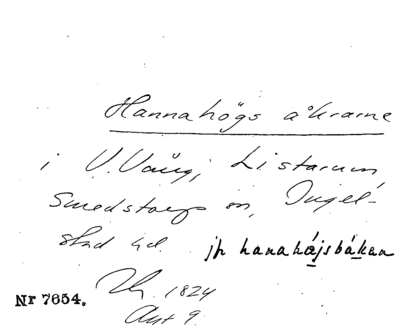 Hannahögs åkrarne
i V. Vång, Listarum,
Smedstorps sn, Ingel-
stad hd. jfr hanahǫjsbakan
1824
Nr 7654.
Akt 9